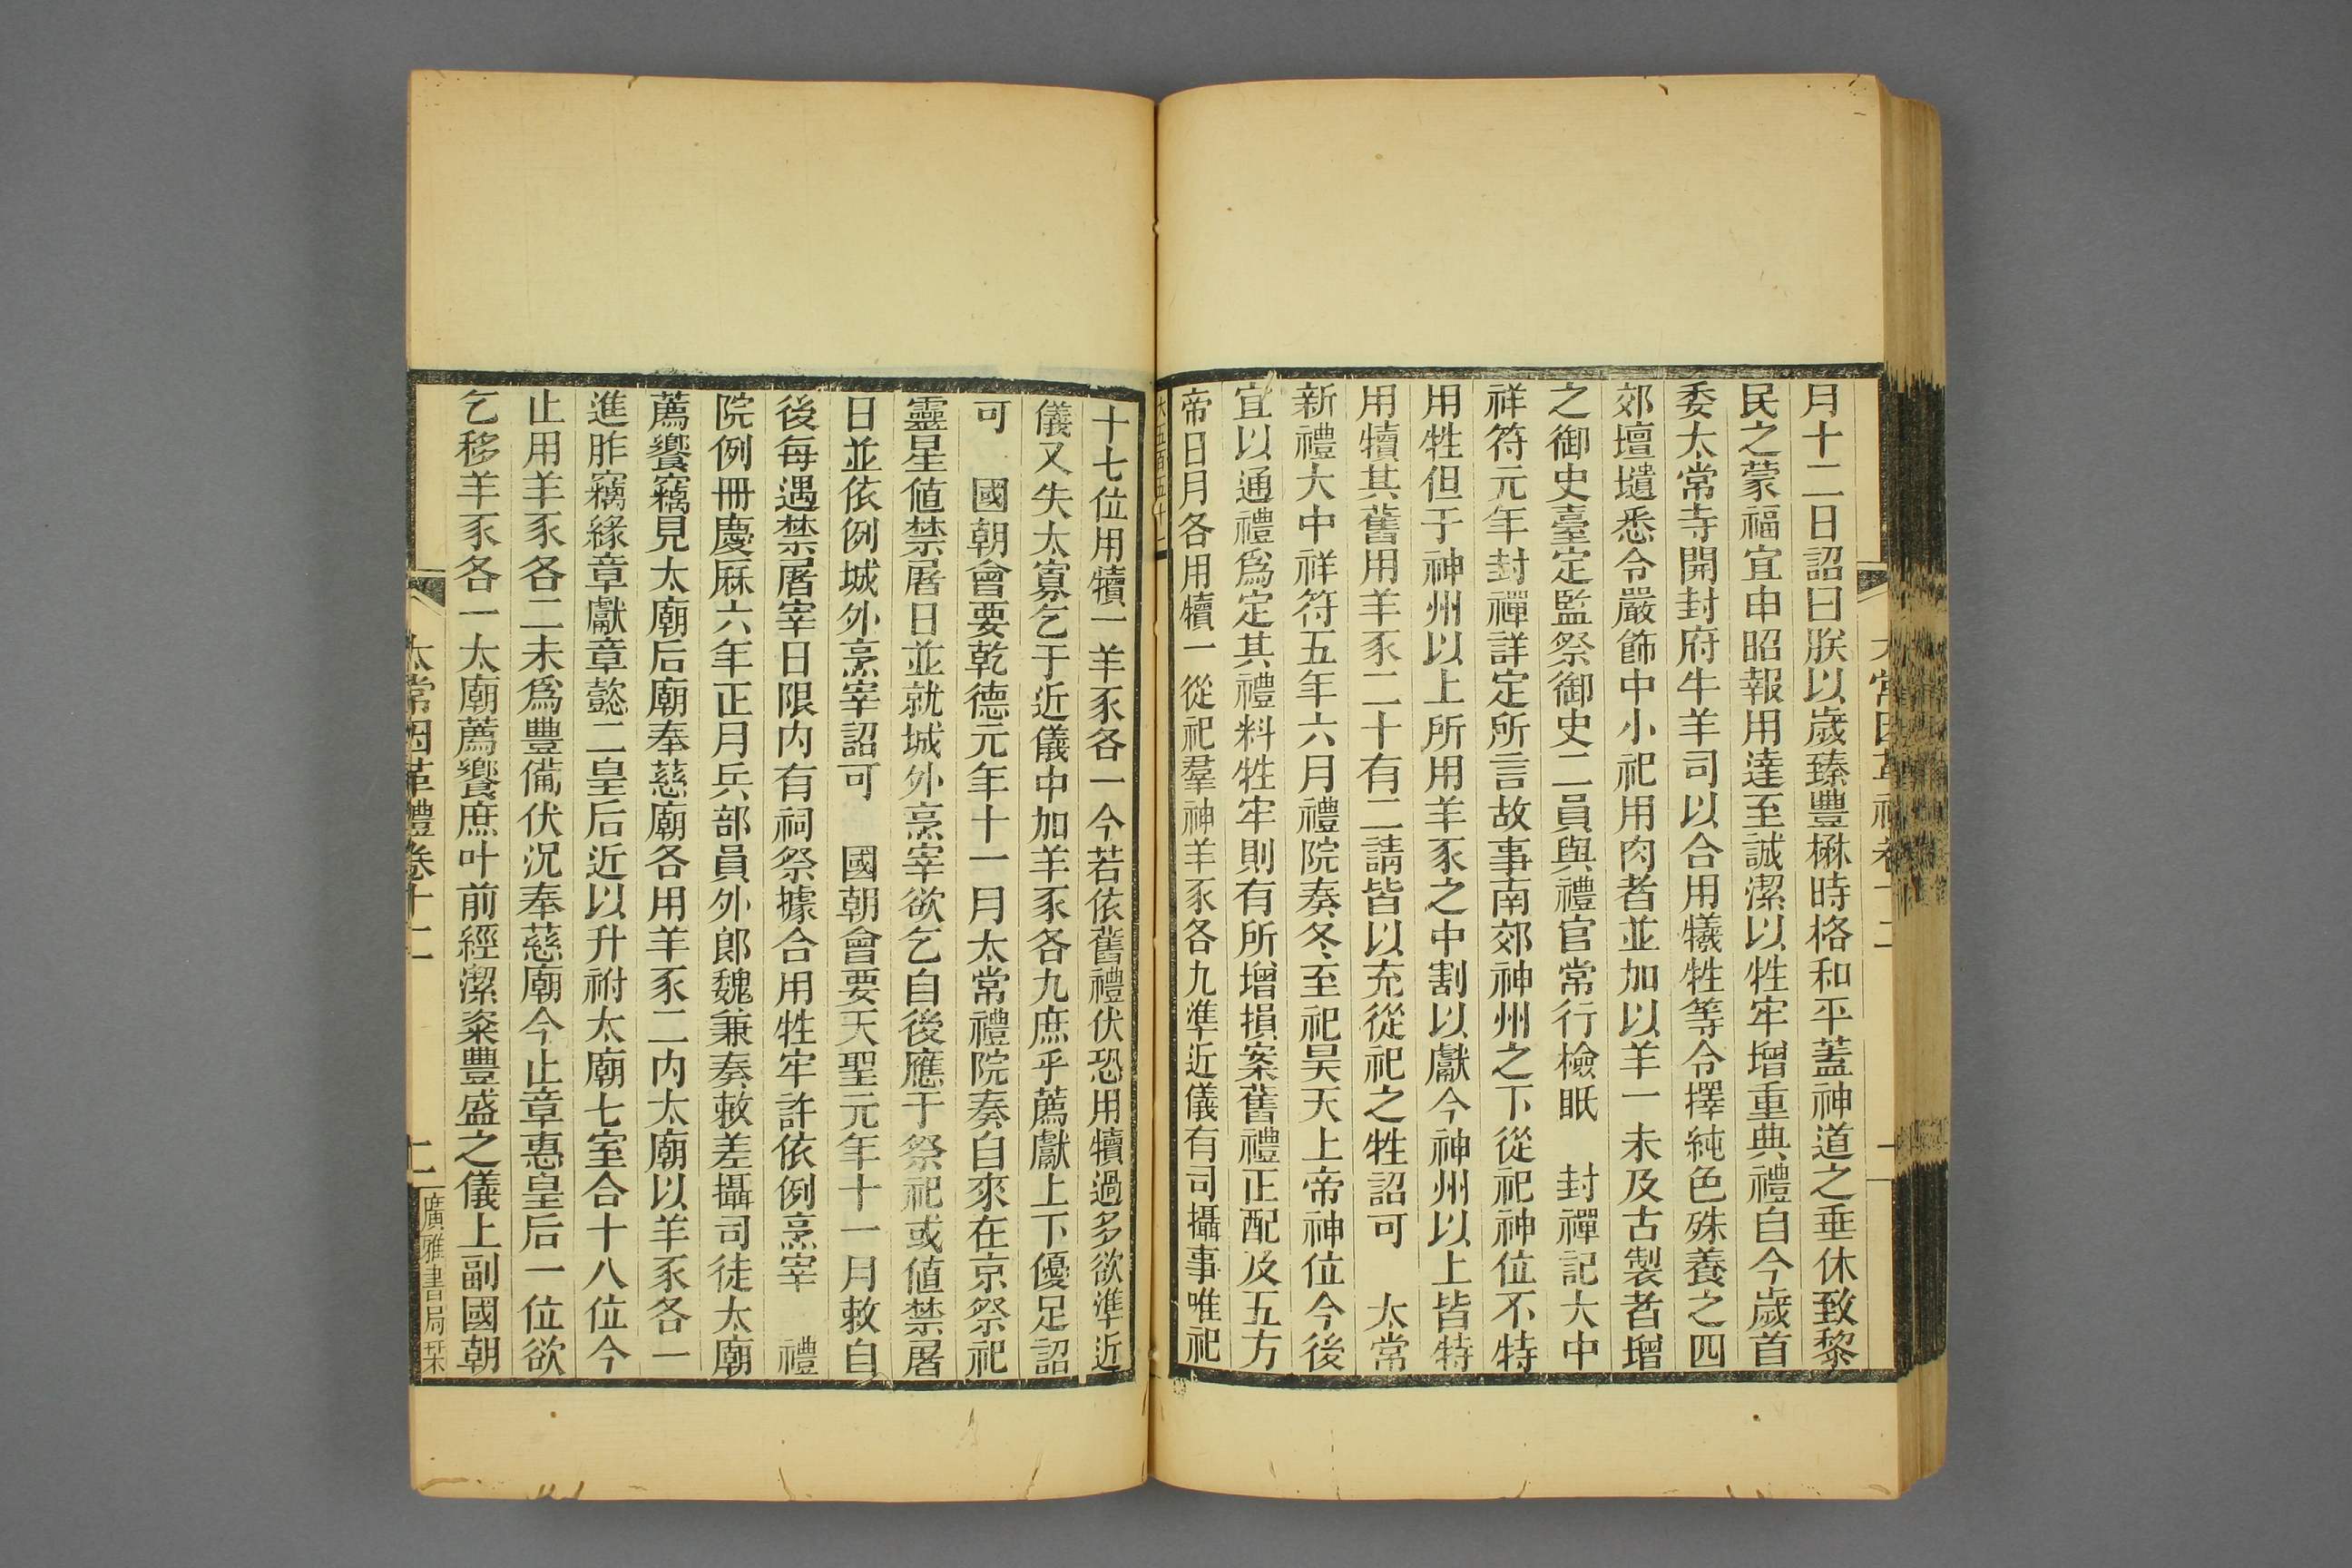 月十二日詔曰朕以歲臻豐楙時格和平蓋神道之垂休致黎
民之蒙福宜申昭報用達至誠潔以牲牢增重典禮自今歲首
委太常寺開封府牛羊司以合用犧牲等令擇純色殊養之四
郊壇壝悉令嚴飾中小祀用肉者並加以羊一未及古製者增
之御史臺定監祭御史二員與禮官常行檢眂　封禪記大中
祥符元年封禪詳定所言故事南郊神州之下從祀神位不特
用牲但于神州以上所用羊豕之中割以獻今神州以上皆特
用犢其舊用羊豕二十有二請皆以充從祀之牲詔可　太常
新禮大中祥符五年六月禮院奏冬至祀昊天上帝神位今後
宜以通禮爲定其禮料牲牢則有所增損案舊禮正配及五方
帝日月各用犢一從祀羣神羊豕各九準近儀有司攝事唯祀
大五百五十二
十七位用犢一羊豕各一今若依舊禮伏恐用犢過多欲準近
儀又失太寡乞于近儀中加羊豕各九庶乎薦獻上下優足詔
可　國朝會要乾德元年十一月太常禮院奏自來在京祭祀
靈星値禁屠日並就城外烹宰欲乞自後應于祭祀或値禁屠
日並依例城外烹宰詔可　國朝會要天聖元年十一月敕自
後每遇禁屠宰日限内有祠祭據合用牲牢許依例烹宰　禮
院例冊慶厤六年正月兵部員外郎魏兼奏敕差攝司徒太廟
薦饗竊見太廟后廟奉慈廟各用羊豕二内太廟以羊豕各一
進胙竊緣章獻章懿二皇后近以升祔太廟七室合十八位今
止用羊豕各二未爲豐備伏況奉慈廟今止章惠皇后一位欲
乞移羊豕各一太廟薦饗庶叶前經潔粢豐盛之儀上副國朝
太常因革禮卷十二
二
廣雅書局栞